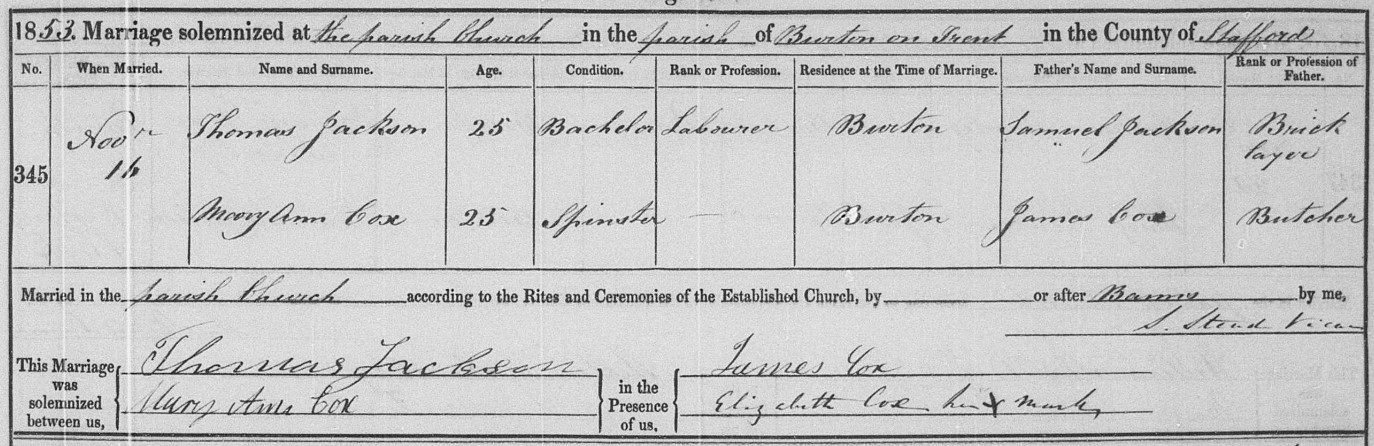 1853. Marriage solemnized at the parish Church in the parish of Burton on Trent in the County of Stafford
No. When Married. Name and Surname. Age. Condition. Rank or Profession. Residence at the Time of Marriage. Father's Name and Surname. Rank or Profession of Father.
345 Novr 16 Thomas Jackson 25 Bachelor Labourer Burton Samuel Jackson Brick layer
Mary Ann Cox 25 Spinster — Burton James Cox Butcher
Married in the parish Church according to the Rites and Ceremonies of the Established Church, by or after Banns by me,
S. Stead Vicar
This Marriage was solemnized between us, Thomas Jackson in the Presence of us, James Cox
Mary Ann Cox Elizabeth Cox her x mark